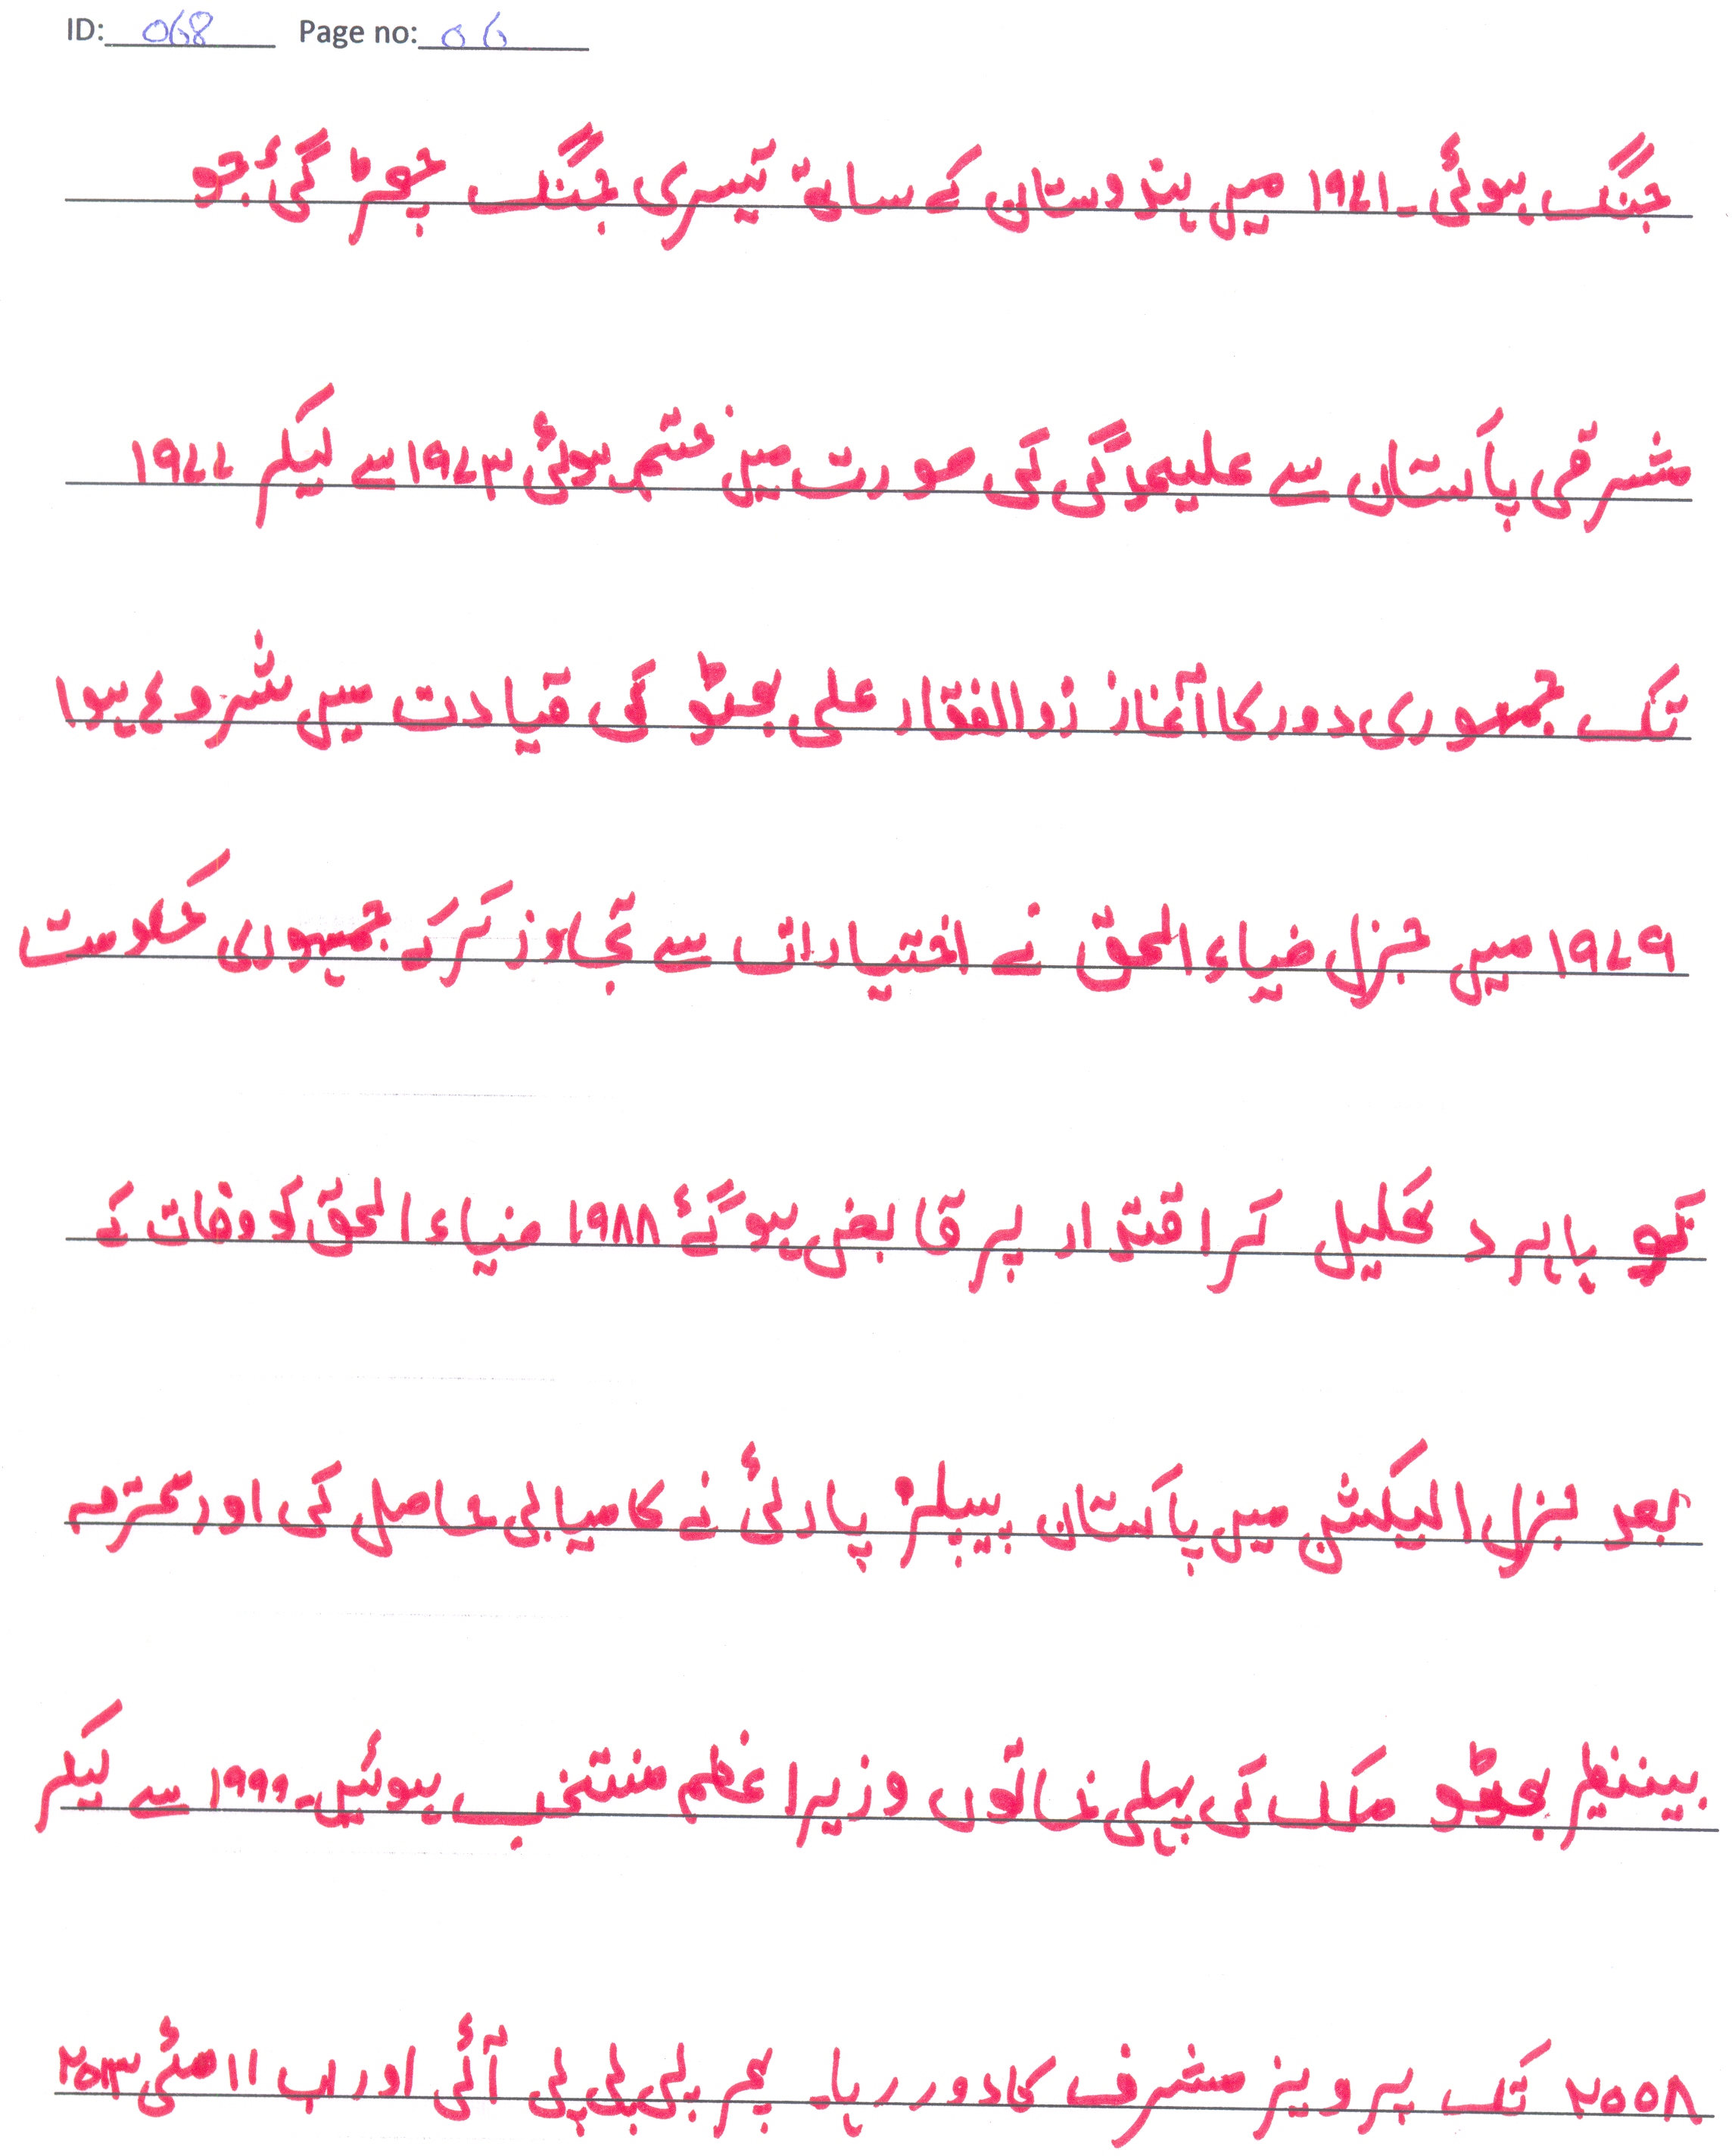 ID: 068 Page no: 06
جنگ ہوئی۔ ۱۹۷۱ میں ہندوستان کے ساتھ تیسری جنگ چھڑ گئی جو
مشرقی پاکستان سے علیحدگی کی صورت میں ختم ہوئی ۱۹۷۳ سے لیکر ۱۹۷۷
تک جمہوری دور کا آغاز ذوالفقار علی بھٹو کی قیادت میں شروع ہوا
۱۹۷۹ میں جنرل ضیاء الحق نے اختیارات سے تجاوز کر کے جمہوری حکومت
کو باہر د ھکیل کر اقتدار پر قابض ہو گئے ۱۹۸۸ ضیاء الحق کو وفات کے
بعد جنرل الیکشن میں پاکستان پیپلز پارٹی نے کامیابی حاصل کی اور محترمہ
بینظیر بھٹو ملک کی پہلی خاتون وزیراعظم منتخب ہوئیں۔ ۱۹۹۹ سے لیکر
۲۰۰۸ تک پرویز مشرف کا دور رہا۔ پھر پی پی پی آئی اور اب ۱۱ مئی ۲۰۱۳